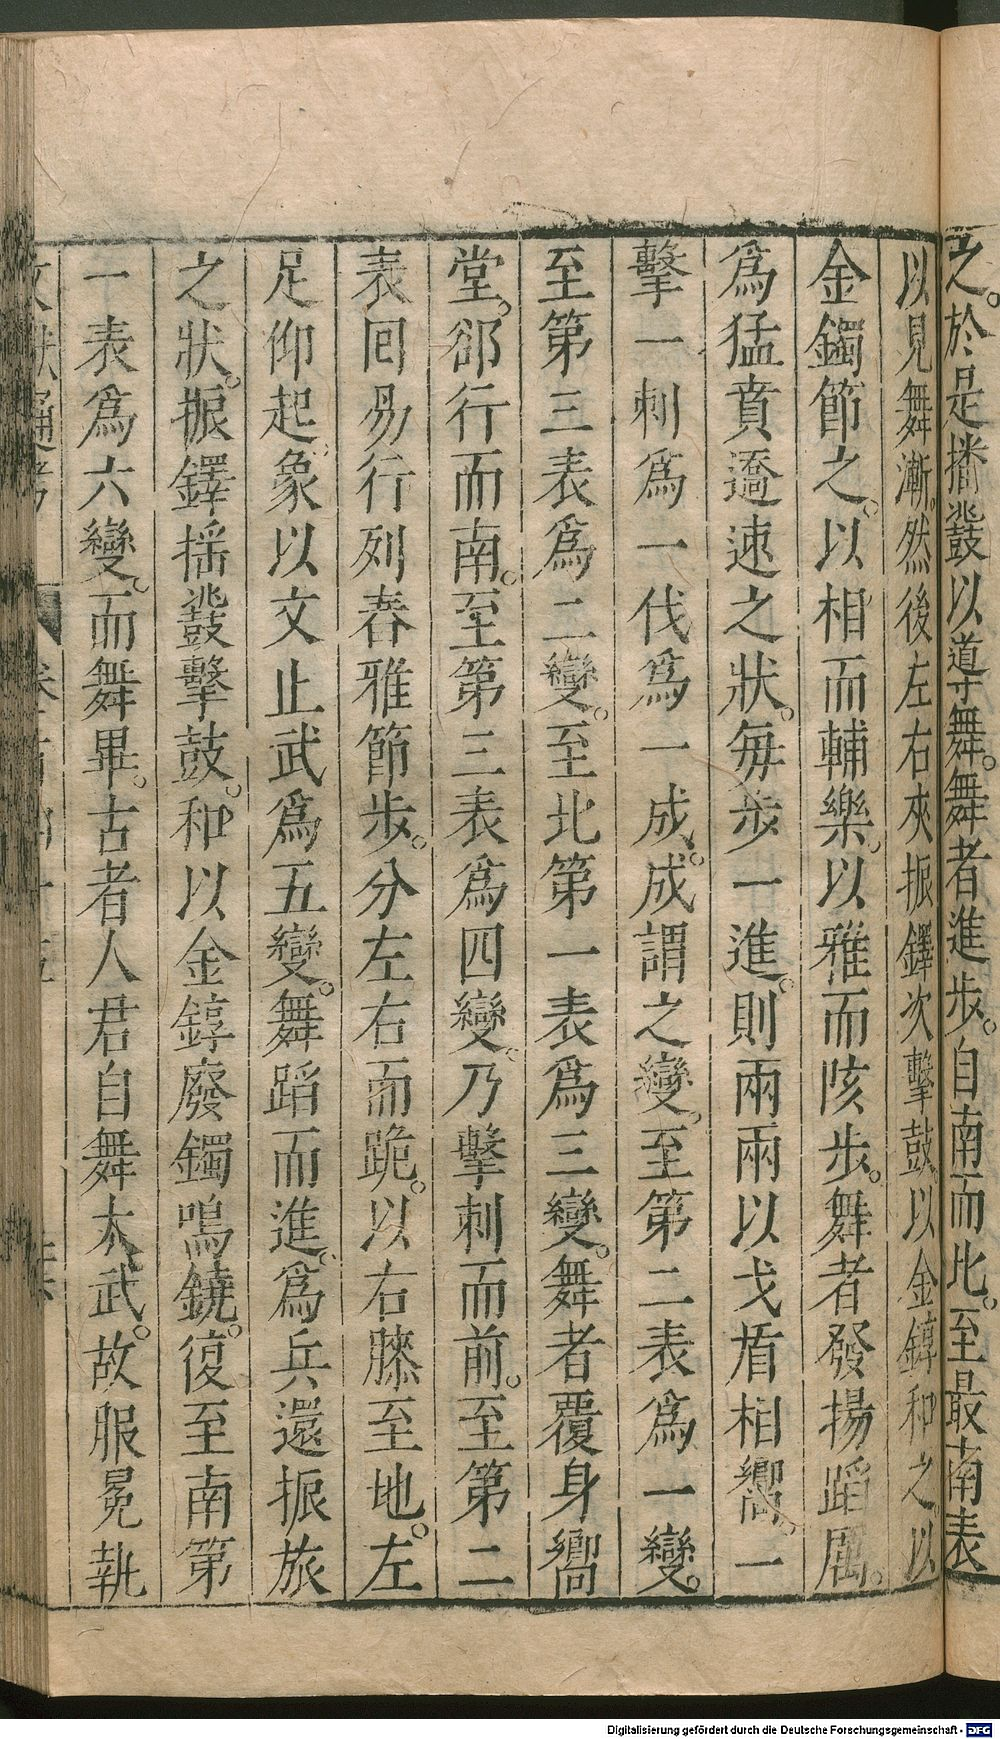 之。於是播鼗以導舞。舞者進步。自南而北。至最南表
以見舞漸。然後左右夾振鐸次擊鼓。以金錞和之。以
金鐲節之。以相而輔樂。以雅而陔步。舞者發揚蹈厲。
爲猛賁遒速之狀。每步一進。則兩兩以戈盾相嚮。一
擊一刺爲一伐爲一成。成謂之變。至第二表爲一變。
至第三表爲二變。至北第一表爲三變。舞者覆身嚮
堂。郤行而南。至第三表爲四變。乃擊刺而前。至第二
表回易行列春雅節步。分左右而跪。以右膝至地。左
足仰起。象以文止武爲五變。舞蹈而進。爲兵還振旅
之狀。振鐸搖鼗擊鼓。和以金錞廢鐲鳴鐃。復至南第
一表爲六變。而舞畢。古者人君自舞大武。故服冕執
Digitalisierung gefördert durch die Deutsche Forschungsgemeinschaft - DFG